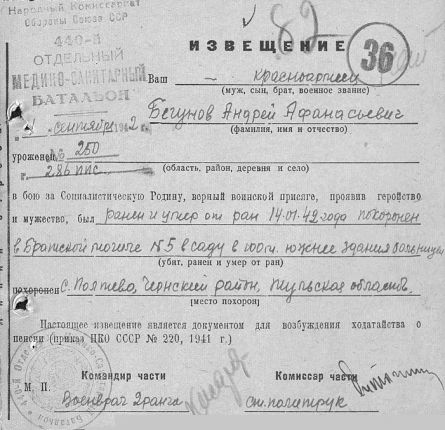 Народный Комиссариат
Обороны Союза ССР
440-й
ОТДЕЛЬНЫЙ
МЕДИКО-САНИТАРНЫЙ
БАТАЛЬОН
сентября
№ 250
286 ппс
82
36
ИЗВЕЩЕНИЕ
Ваш – красноармеец
(муж, сын, брат, военное звание)
Бегунов Андрей Афанасьевич
(фамилия, имя и отчество)
уроженец
(область, район, деревня и село)
в бою за Социалистическую Родину, верный воинской присяге, проявив геройство
и мужество, был ранен и умер от ран 14.01.42 года похоронен
в братской могиле №5 в саду в 100 м. южнее здания больницы
(убит, ранен и умер от ран)
похоронен с. Полтево, Чернский район, Тульская область.
(место похорон)
Настоящее извещение является документом для возбуждения ходатайства о
пенсии (приказ НКО СССР № 220, 1941 г.)
М. П.
Командир части
Военврач 2 ранга
Комиссар части
ст. политрук